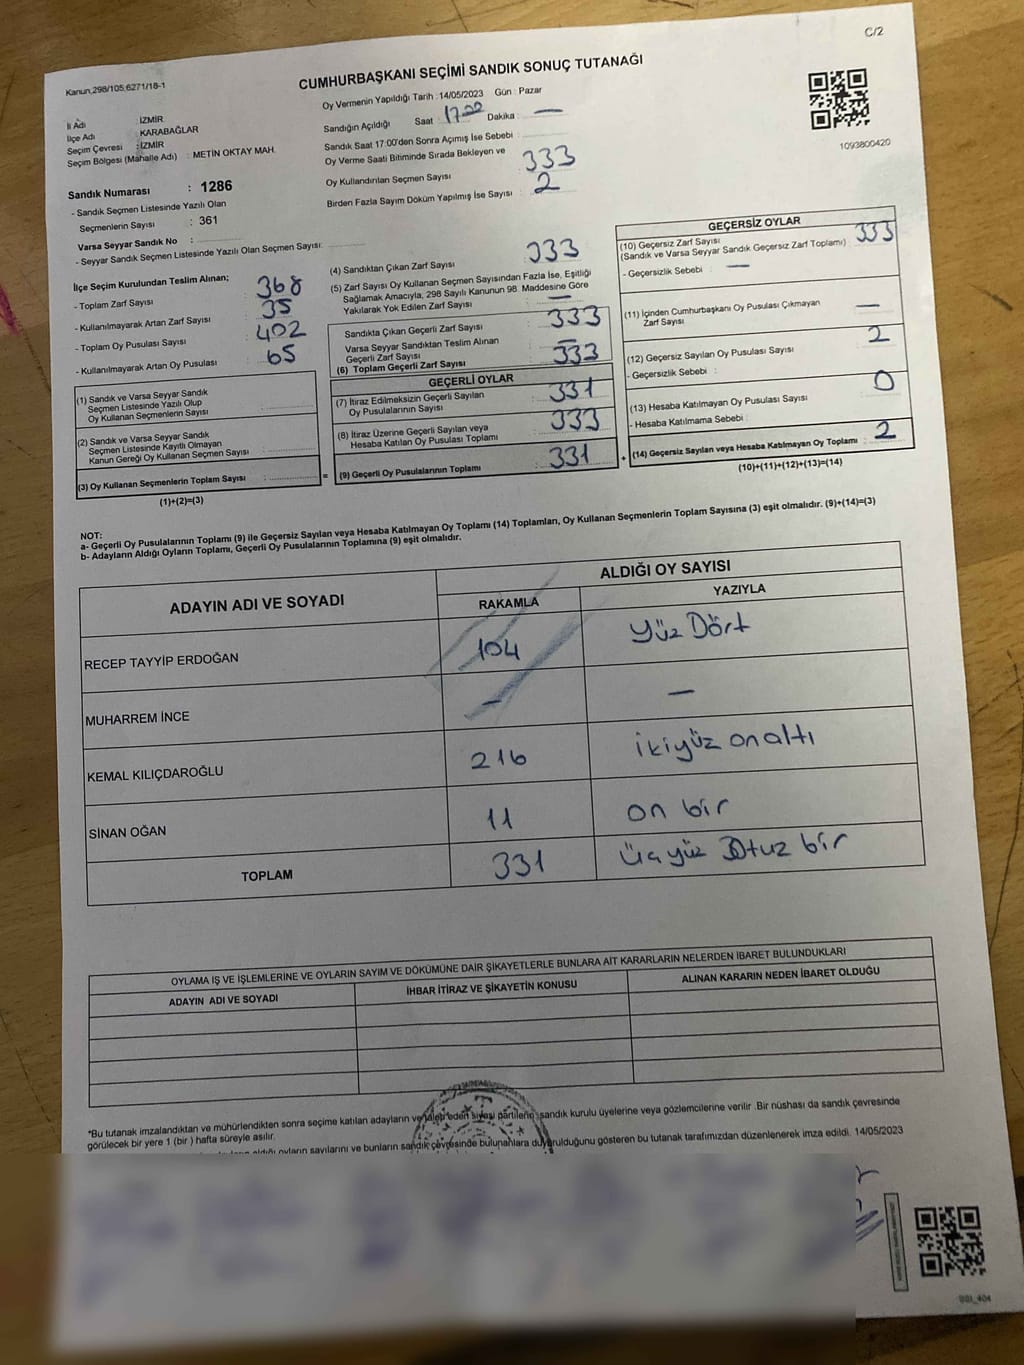 C/2
Kanun,298/105,6271/18-1
CUMHURBAŞKANI SEÇİMİ SANDIK SONUÇ TUTANAĞI
Oy Vermenin Yapıldığı Tarih : 14/05/2023 Gün : Pazar
Sandığın Açıldığı Saat : 17:00 Dakika : —
Sandık Saat 17:00'den Sonra Açımış İse Sebebi :
Oy Verme Saati Bitiminde Sırada Bekleyen ve
Oy Kullandırılan Seçmen Sayısı : 333
Birden Fazla Sayım Döküm Yapılmış İse Sayısı : 2
1093800420
İl Adı : İZMİR
İlçe Adı : KARABAĞLAR
Seçim Çevresi : İZMİR
Seçim Bölgesi (Mahalle Adı) : METİN OKTAY MAH.
Sandık Numarası : 1286
- Sandık Seçmen Listesinde Yazılı Olan
Seçmenlerin Sayısı : 361
Varsa Seyyar Sandık No :
- Seyyar Sandık Seçmen Listesinde Yazılı Olan Seçmen Sayısı:
İlçe Seçim Kurulundan Teslim Alınan;
- Toplam Zarf Sayısı : 368
- Kullanılmayarak Artan Zarf Sayısı : 35
- Toplam Oy Pusulası Sayısı : 402
- Kullanılmayarak Artan Oy Pusulası : 65
(1) Sandık ve Varsa Seyyar Sandık
Seçmen Listesinde Yazılı Olup
Oy Kullanan Seçmenlerin Sayısı :
(2) Sandık ve Varsa Seyyar Sandık
Seçmen Listesinde Kayıtlı Olmayan
Kanun Gereği Oy Kullanan Seçmen Sayısı :
(3) Oy Kullanan Seçmenlerin Toplam Sayısı :
(1)+(2)=(3)
(4) Sandıktan Çıkan Zarf Sayısı : 333
(5) Zarf Sayısı Oy Kullanan Seçmen Sayısından Fazla İse, Eşitliği
Sağlamak Amacıyla, 298 Sayılı Kanunun 98. Maddesine Göre
Yakılarak Yok Edilen Zarf Sayısı : —
Sandıkta Çıkan Geçerli Zarf Sayısı : 333
Varsa Seyyar Sandıktan Teslim Alınan
Geçerli Zarf Sayısı : —
(6) Toplam Geçerli Zarf Sayısı : 333
GEÇERLİ OYLAR
(7) İtiraz Edilmeksizin Geçerli Sayılan
Oy Pusulalarının Sayısı : 331
(8) İtiraz Üzerine Geçerli Sayılan veya
Hesaba Katılan Oy Pusulası Toplamı : 333
= (9) Geçerli Oy Pusulalarının Toplamı : 331
GEÇERSİZ OYLAR
(10) Geçersiz Zarf Sayısı
(Sandık ve Varsa Seyyar Sandık Geçersiz Zarf Toplamı) : 333
- Geçersizlik Sebebi : —
(11) İçinden Cumhurbaşkanı Oy Pusulası Çıkmayan
Zarf Sayısı : —
(12) Geçersiz Sayılan Oy Pusulası Sayısı : 2
- Geçersizlik Sebebi :
(13) Hesaba Katılmayan Oy Pusulası Sayısı : 0
- Hesaba Katılmama Sebebi :
+ (14) Geçersiz Sayılan veya Hesaba Katılmayan Oy Toplamı : 2
(10)+(11)+(12)+(13)=(14)
NOT:
a- Geçerli Oy Pusulalarının Toplamı (9) ile Geçersiz Sayılan veya Hesaba Katılmayan Oy Toplamı (14) Toplamları, Oy Kullanan Seçmenlerin Toplam Sayısına (3) eşit olmalıdır. (9)+(14)=(3)
b- Adayların Aldığı Oyların Toplamı, Geçerli Oy Pusulalarının Toplamına (9) eşit olmalıdır.
ADAYIN ADI VE SOYADI ALDIĞI OY SAYISI
RAKAMLA YAZIYLA
RECEP TAYYİP ERDOĞAN 104 Yüz Dört
MUHARREM İNCE — —
KEMAL KILIÇDAROĞLU 216 ikiyüz onaltı
SİNAN OĞAN 11 on bir
TOPLAM 331 üçyüz Otuz bir
OYLAMA İŞ VE İŞLEMLERİNE VE OYLARIN SAYIM VE DÖKÜMÜNE DAİR ŞİKAYETLERLE BUNLARA AİT KARARLARIN NELERDEN İBARET BULUNDUKLARI
ADAYIN ADI VE SOYADI İHBAR İTİRAZ VE ŞİKAYETİN KONUSU ALINAN KARARIN NEDEN İBARET OLDUĞU
*Bu tutanak imzalandıktan ve mühürlendikten sonra seçime katılan adayların ve talep eden siyasi partilerin, sandık kurulu üyelerine veya gözlemcilerine verilir .Bir nüshası da sandık çevresinde
görülecek bir yere 1 (bir ) hafta süreyle asılır.
aldığı oyların sayılarını ve bunların sandık çevresinde bulunanlara duyurulduğunu gösteren bu tutanak tarafımızdan düzenlenerek imza edildi. 14/05/2023